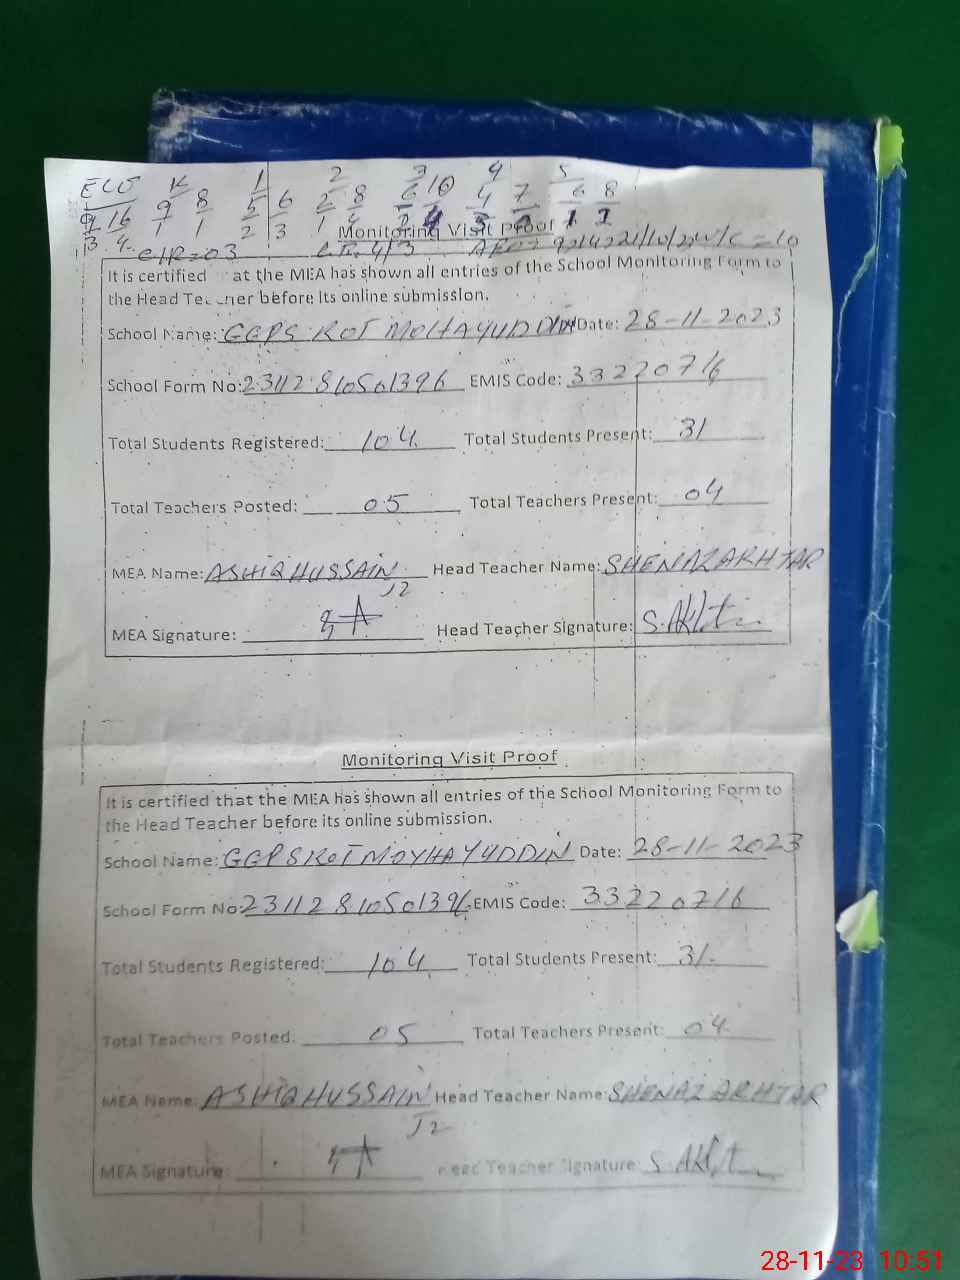 ECE K 1 2 3 4 5
16 9 8 5 6 2 8 6 10 4 7 6 8
3 4 1 1 2 3 1 4
C/R=03
Monitoring Visit Proof
It is certified at the MEA has shown all entries of the School Monitoring Form to
the Head Teacher before its online submission.
School Name: GGPS KOT MOHAYUDDIN Date: 28-11-2023
School Form No: 23112810501396 EMIS Code: 33220716
Total Students Registered: 104 Total Students Present: 31
Total Teachers Posted: 05 Total Teachers Present: 04
MEA Name: ASHIQ HUSSAIN Head Teacher Name: SHENAZ AKHTAR
J2
MEA Signature: Head Teacher Signature: S.Akhtar
Monitoring Visit Proof
It is certified that the MEA has shown all entries of the School Monitoring Form to
the Head Teacher before its online submission.
School Name: GGPS KOT MOYHAYUDDIN Date: 28-11-2023
School Form No: 23112810501396 EMIS Code: 33220716
Total Students Registered: 104 Total Students Present: 31
Total Teachers Posted: 05 Total Teachers Present: 04
MEA Name: ASHIQ HUSSAIN Head Teacher Name: SHENAZ AKHTAR
J2
MEA Signature: Head Teacher Signature: S.Akhtar
28-11-23 10:51